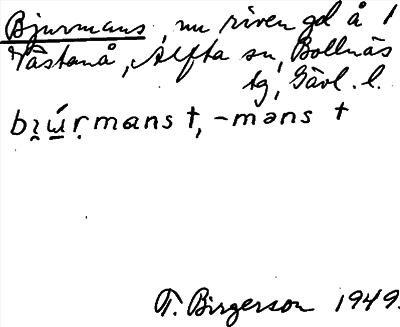 Bjurmans, nu riven gd å 1
Västanå, Alfta sn, Bollnäs
tg, Gävl. l.
bi̯ɯ́r̤mans †, -məns †
T. Birgerson 1949.